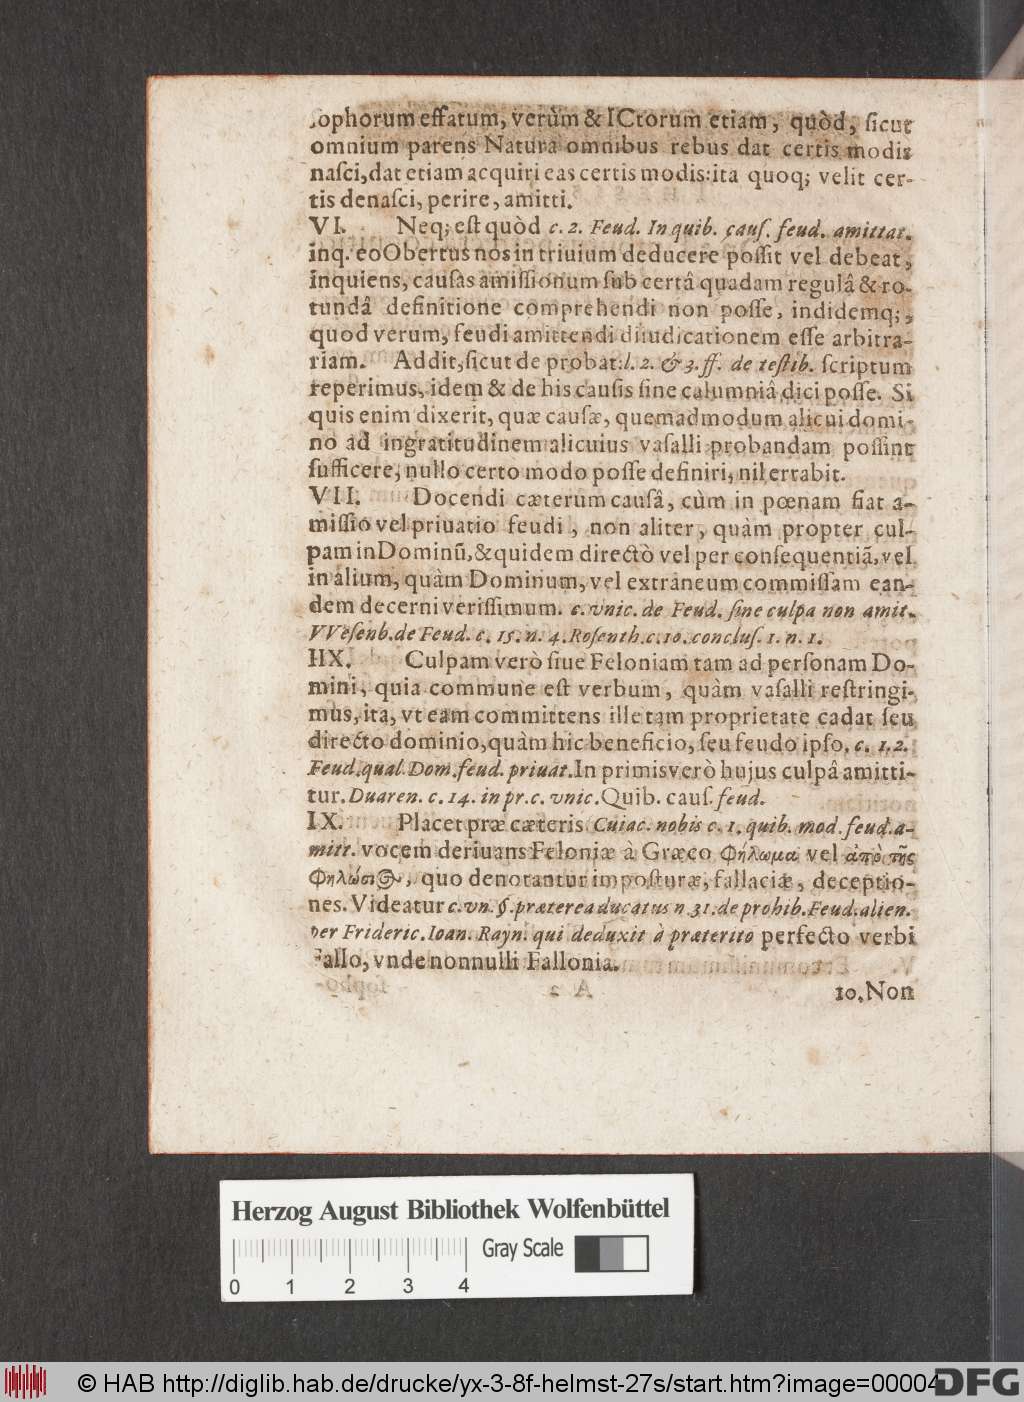 sophorum effatum, verùm & ICtorum etiam, quòd, ſicut
omnium parens Natura omnibus rebus dat certis modis
naſci, dat etiam acquiri eas certis modis: ita quoq; velit cer-
tis denaſci, perire, amitti.
VI. Neq; eſt quòd c. 2. Feud. In quib. cauſ. feud. amittat.
inq. eo Obertus nos in triuium deducere poſſit vel debeat,
inquiens, cauſas amiſſionum ſub certâ quadam regulâ & ro-
tundâ definitione comprehendi non poſſe, indidemq;,
quod verum, feudi amittendi diiudicationem eſſe arbitra-
riam. Addit, ſicut de probat. l. 2. & 3. ff. de teſtib. ſcriptum
reperimus, idem & de his cauſis ſine calumniâ dici poſſe. Si
quis enim dixerit, quæ cauſæ, quemadmodum alicui domi-
no ad ingratitudinem alicuius vaſalli probandam poſſint
ſufficere, nullo certo modo poſſe definiri, nil errabit.
VII. Docendi cæterum cauſâ, cùm in pœnam fiat a-
miſſio vel priuatio feudi, non aliter, quàm propter cul-
pam in Dominũ, & quidem directò vel per conſequentiã, vel
in alium, quàm Dominum, vel extraneum commiſſam ean-
dem decerni veriſſimum. c. vnic. de Feud. ſine culpa non amit.
VVeſenb. de Feud. c. 15. n. 4. Roſenth. c. 10. concluſ. 1. n. 1.
IIX. Culpam verò ſiue Feloniam tam ad perſonam Do-
mini, quia commune eſt verbum, quàm vaſalli reſtringi-
mus, ita, vt eam committens ille tam proprietate cadat ſeu
directo dominio, quàm hic beneficio, ſeu feudo ipſo. c. 1. 2.
Feud. qual. Dom. feud. priuat. In primis verò hujus culpâ amitti-
tur. Duaren. c. 14. in pr. c. vnic. Quib. cauſ. feud.
IX. Placet præ cæteris Cuiac. nobis c. 1. quib. mod. feud. a-
mitt. vocem deriuans Feloniæ à Græco Φήλωμα vel ἀπὸ τῆς
Φηλώσεως, quo denotantur impoſturæ, fallaciæ, deceptio-
nes. Videatur c. vn. §. præterea ducatus n. 31. de prohib. Feud. alien.
per Frideric. Ioan. Rayn. qui deduxit à præterito perfecto verbi
Fallo, vnde nonnulli Fallonia.
10. Non
Herzog August Bibliothek Wolfenbüttel
Gray Scale
0 1 2 3 4
© HAB http://diglib.hab.de/drucke/yx-3-8f-helmst-27s/start.htm?image=00004
DFG